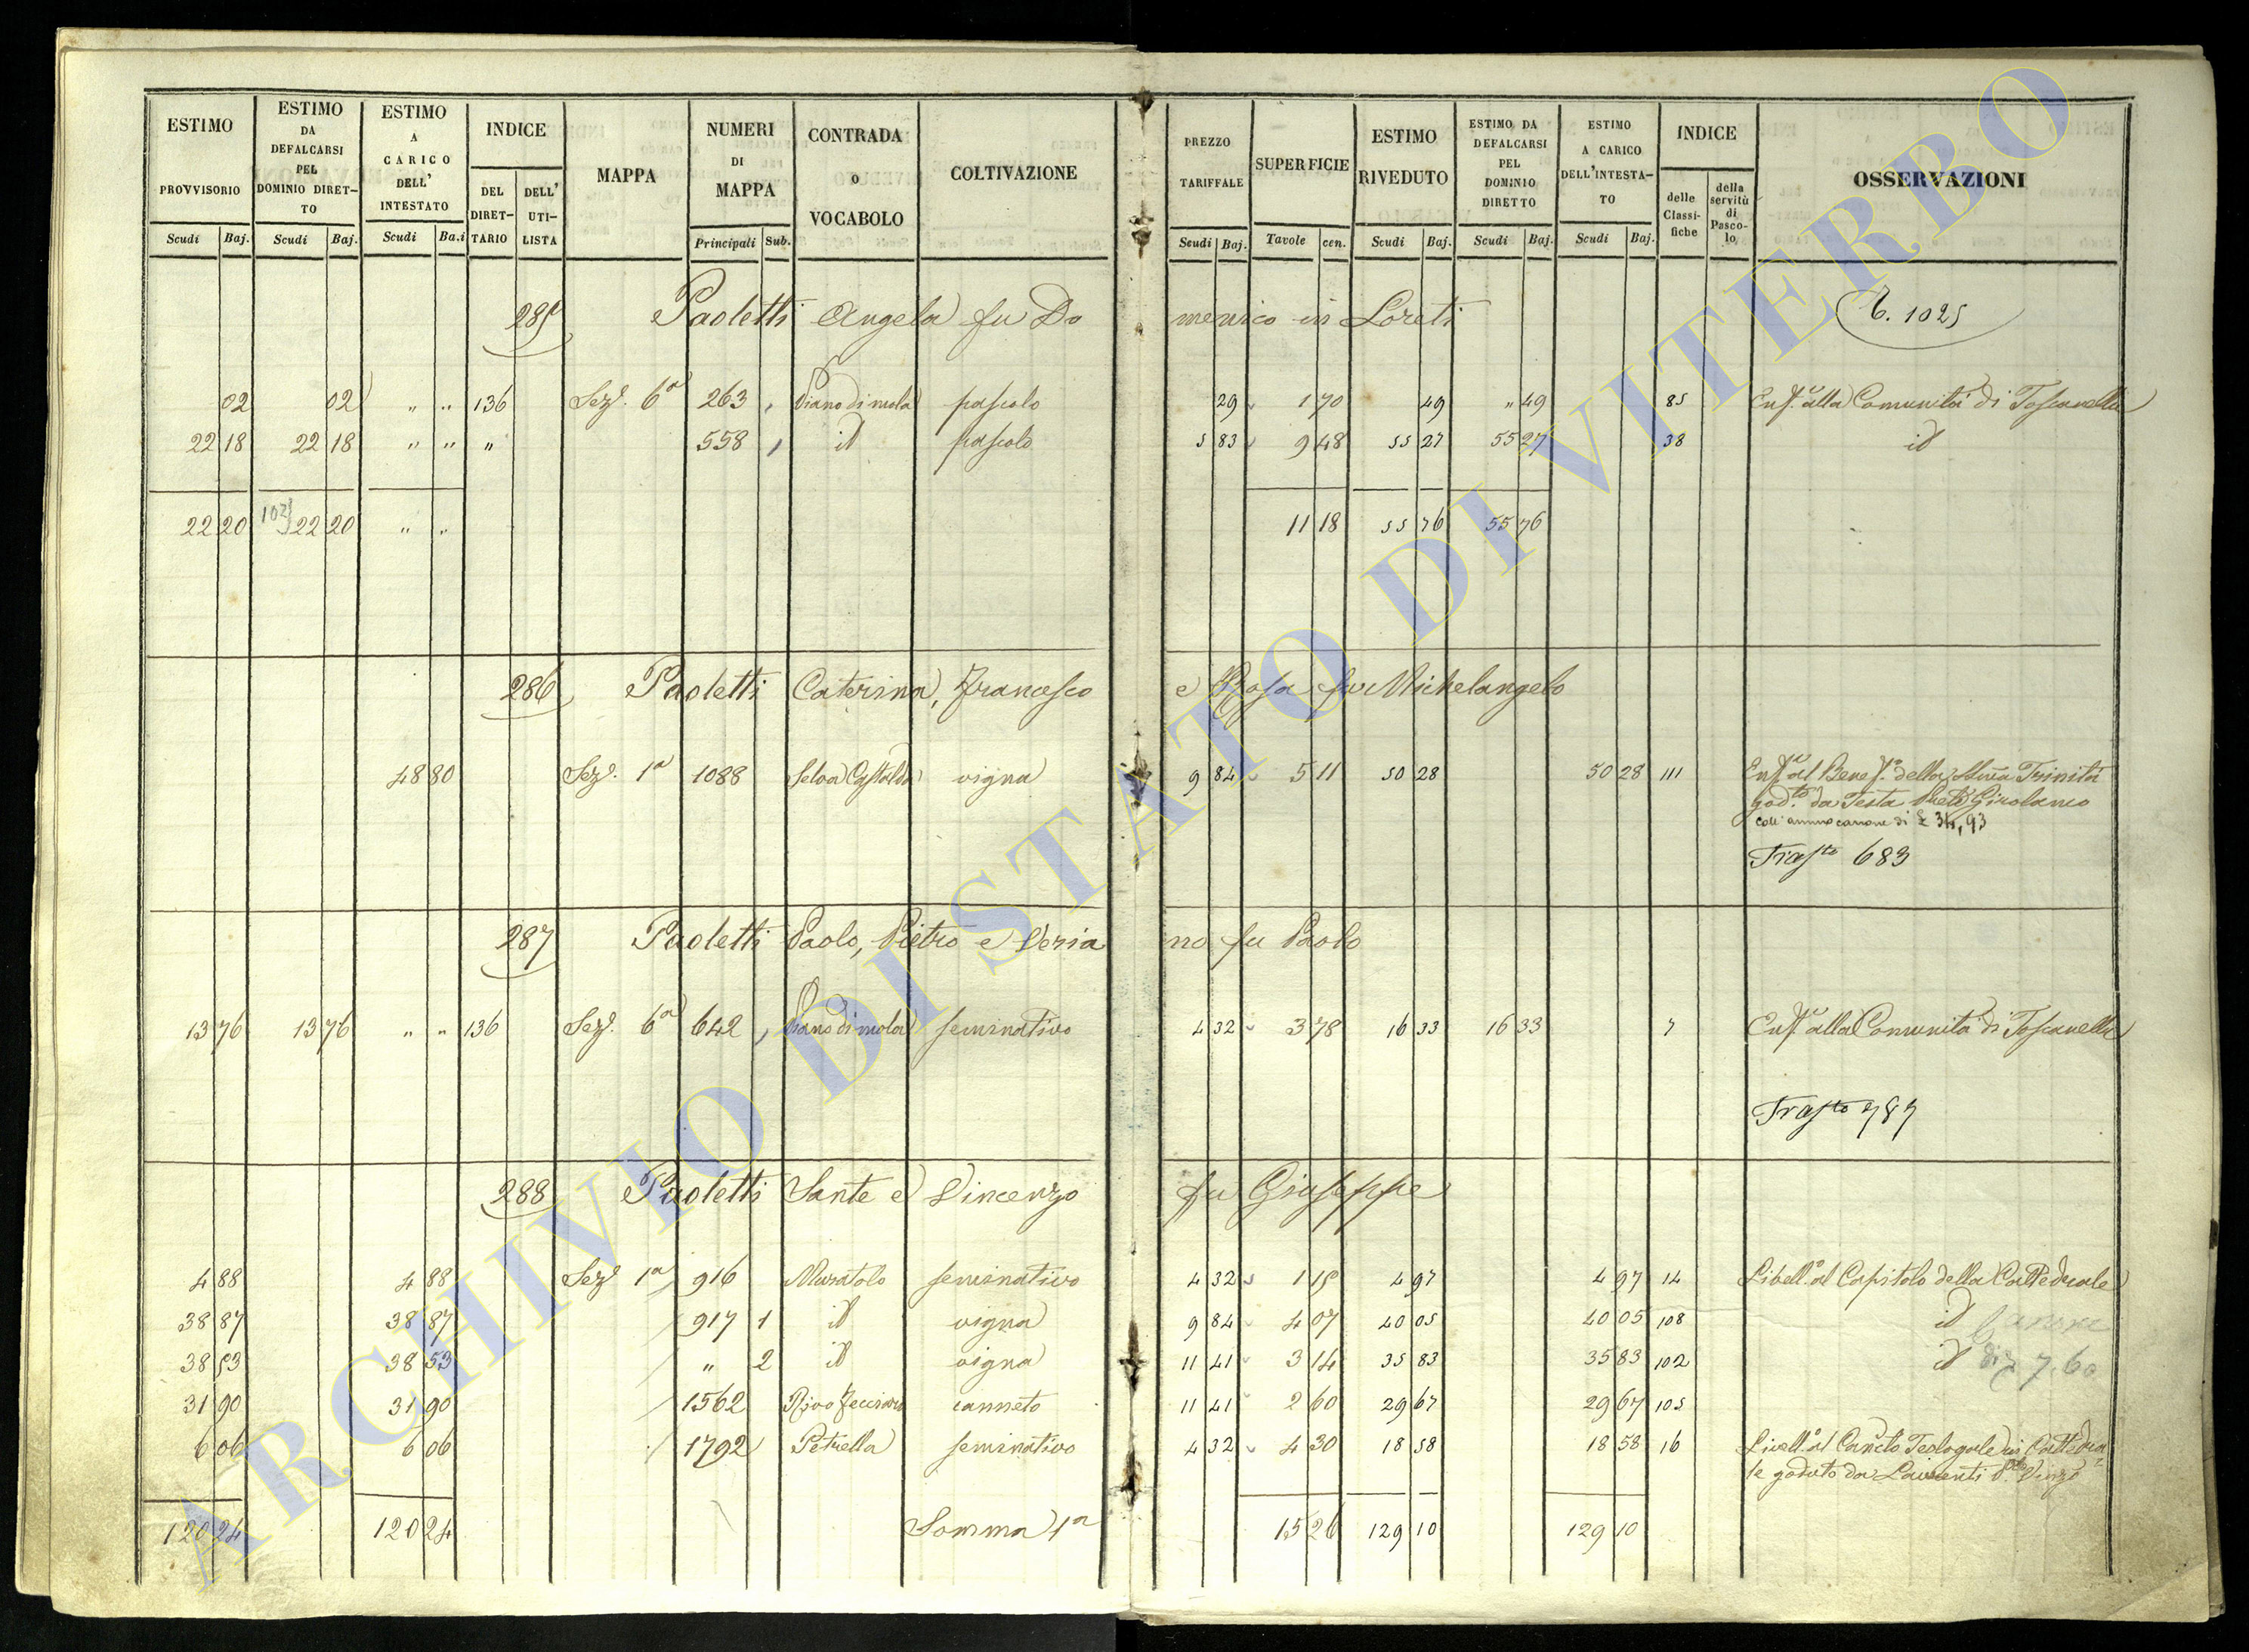 ESTIMO PROVVISORIO Scudi Baj. ESTIMO DA DEFALCARSI PEL DOMINIO DIRETTO Scudi Baj. ESTIMO A CARICO DELL' INTESTATO Scudi Ba.i INDICE DEL DIRETTARIO DELL' UTILISTA MAPPA NUMERI DI MAPPA Principali Sub. CONTRADA O VOCABOLO COLTIVAZIONE PREZZO TARIFFALE Scudi Baj. SUPERFICIE Tavole cen. ESTIMO RIVEDUTO Scudi Baj. ESTIMO DA DEFALCARSI PEL DOMINIO DIRETTO Scudi Baj. ESTIMO A CARICO DELL'INTESTATO Scudi Baj. INDICE delle Classifiche della servitù di Pascolo OSSERVAZIONI
285 Paoletti Angela fu Domenico in Loreti 1025
02 02 " " 136 Sez.e 6a 263 Piano di mola pascolo 29 1 70 49 " 49 85 Enf.a alla Comunità di Toscanella
22 18 22 18 " " " 558 id pascolo 5 83 9 48 55 27 55 27 38 id
22 20 22 20 " " 11 18 55 76 55 76
286 Paoletti Caterina, Francesco e Rosa fu Michelangelo
48 80 Sez.e 1a 1088 Selva vigna 9 84 5 11 50 28 50 28 111 Enf.a al Benef.o della Trinità
god.to da Testa Girolamo
coll'annuo canone di £ 34,93
Trasto 683
287 Paoletti Paolo, Pietro e Veriano fu Paolo
13 76 13 76 " " 136 Sez.e 6a 642 Piano di mola seminativo 4 32 3 78 16 33 16 33 7 Enf.a alla Comunità di Toscanella
Trasto 787
288 Paoletti Sante e Vincenzo fu Giuseppe
4 88 4 88 Sez.e 1a 916 Muratolo seminativo 4 32 1 15 4 97 4 97 14 Libell.o al Capitolo della Cattedrale
38 87 38 87 917 1 id vigna 9 84 4 07 40 05 40 05 108 id Canone
38 53 38 53 " 2 id vigna 11 41 3 14 35 83 35 83 102 id di £ 7.60
31 90 31 90 1562 Rivo canneto 11 41 2 60 29 67 29 67 105
6 06 6 06 1792 Petrella seminativo 4 32 4 30 18 58 18 58 16 Livell.o al Teologale in Cattedra
le goduto da
120 24 120 24 Somma 1a 15 26 129 10 129 10
ARCHIVIO DI STATO DI VITERBO